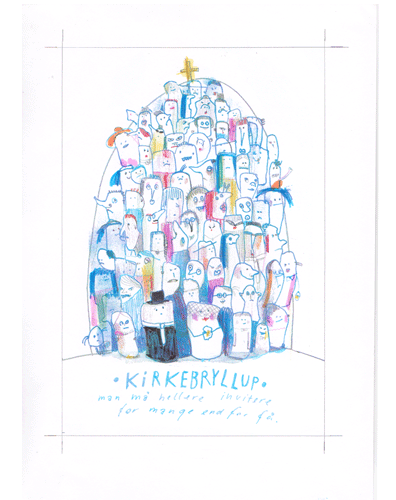 • KIRKEBRYLLUP •
man må hellere invitere
for mange end for få.